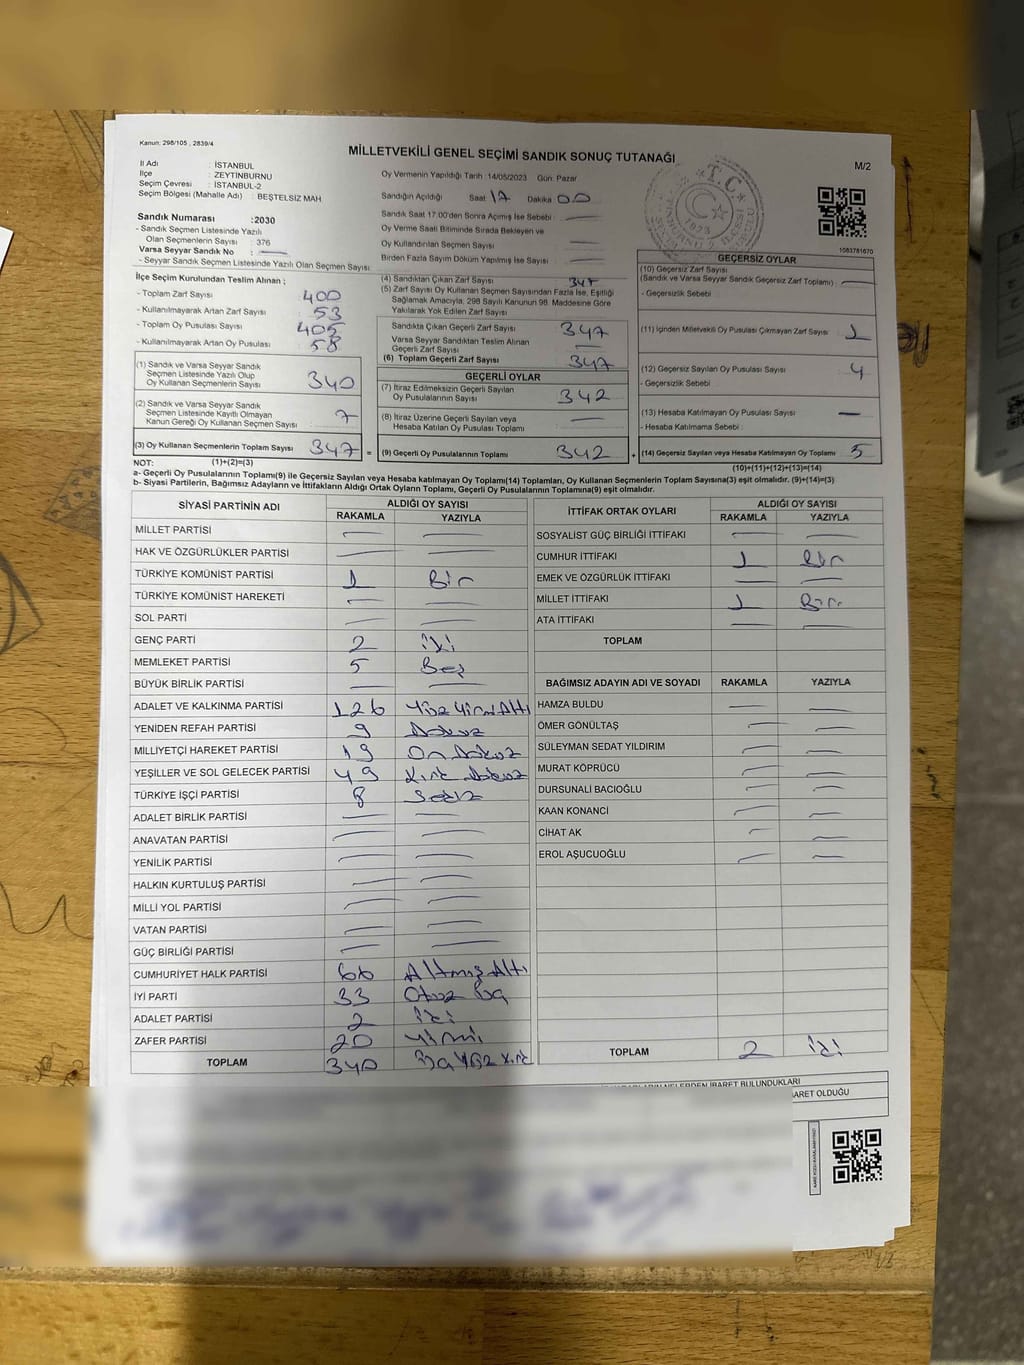 Kanun: 298/105 , 2839/4
MİLLETVEKİLİ GENEL SEÇİMİ SANDIK SONUÇ TUTANAĞI
M/2
İl Adı : İSTANBUL
İlçe : ZEYTİNBURNU
Seçim Çevresi : İSTANBUL-2
Seçim Bölgesi (Mahalle Adı) : BEŞTELSİZ MAH
Oy Vermenin Yapıldığı Tarih : 14/05/2023 Gün: Pazar
Sandığın Açıldığı Saat 17 Dakika 00
Sandık Saat 17:00'den Sonra Açılmış İse Sebebi :
Oy Verme Saati Bitiminde Sırada Bekleyen ve
Oy Kullandırılan Seçmen Sayısı
Birden Fazla Sayım Döküm Yapılmış İse Sayısı :
T.C.
2023
1083781670
Sandık Numarası :2030
- Sandık Seçmen Listesinde Yazılı
Olan Seçmenlerin Sayısı : 376
Varsa Seyyar Sandık No :
- Seyyar Sandık Seçmen Listesinde Yazılı Olan Seçmen Sayısı
İlçe Seçim Kurulundan Teslim Alınan ;
- Toplam Zarf Sayısı 400
- Kullanılmayarak Artan Zarf Sayısı 53
- Toplam Oy Pusulası Sayısı 405
- Kullanılmayarak Artan Oy Pusulası 58
(1) Sandık ve Varsa Seyyar Sandık
Seçmen Listesinde Yazılı Olup
Oy Kullanan Seçmenlerin Sayısı 340
(2) Sandık ve Varsa Seyyar Sandık
Seçmen Listesinde Kayıtlı Olmayan
Kanun Gereği Oy Kullanan Seçmen Sayısı 7
(3) Oy Kullanan Seçmenlerin Toplam Sayısı 347 =
(4) Sandıktan Çıkan Zarf Sayısı 347
(5) Zarf Sayısı Oy Kullanan Seçmen Sayısından Fazla İse, Eşitliği
Sağlamak Amacıyla, 298 Sayılı Kanunun 98. Maddesine Göre
Yakılarak Yok Edilen Zarf Sayısı
Sandıkta Çıkan Geçerli Zarf Sayısı 347
Varsa Seyyar Sandıktan Teslim Alınan
Geçerli Zarf Sayısı
(6) Toplam Geçerli Zarf Sayısı 347
GEÇERLİ OYLAR
(7) İtiraz Edilmeksizin Geçerli Sayılan
Oy Pusulalarının Sayısı 342
(8) İtiraz Üzerine Geçerli Sayılan veya
Hesaba Katılan Oy Pusulası Toplamı
(9) Geçerli Oy Pusulalarının Toplamı 342 +
GEÇERSİZ OYLAR
(10) Geçersiz Zarf Sayısı
(Sandık ve Varsa Seyyar Sandık Geçersiz Zarf Toplamı) :
- Geçersizlik Sebebi :
(11) İçinden Milletvekili Oy Pusulası Çıkmayan Zarf Sayısı : 1
(12) Geçersiz Sayılan Oy Pusulası Sayısı 4
- Geçersizlik Sebebi
(13) Hesaba Katılmayan Oy Pusulası Sayısı
- Hesaba Katılmama Sebebi :
(14) Geçersiz Sayılan veya Hesaba Katılmayan Oy Toplamı 5
NOT: (1)+(2)=(3) (10)+(11)+(12)+(13)=(14)
a- Geçerli Oy Pusulalarının Toplamı(9) ile Geçersiz Sayılan veya Hesaba katılmayan Oy Toplamı(14) Toplamları, Oy Kullanan Seçmenlerin Toplam Sayısına(3) eşit olmalıdır. (9)+(14)=(3)
b- Siyasi Partilerin, Bağımsız Adayların ve İttifakların Aldığı Ortak Oyların Toplamı, Geçerli Oy Pusulalarının Toplamına(9) eşit olmalıdır.
SİYASİ PARTİNİN ADI ALDIĞI OY SAYISI
RAKAMLA YAZIYLA
MİLLET PARTİSİ
HAK VE ÖZGÜRLÜKLER PARTİSİ
TÜRKİYE KOMÜNİST PARTİSİ 1 Bir
TÜRKİYE KOMÜNİST HAREKETİ
SOL PARTİ
GENÇ PARTİ 2 iki
MEMLEKET PARTİSİ 5 Beş
BÜYÜK BİRLİK PARTİSİ
ADALET VE KALKINMA PARTİSİ 126 Yüz Yirmi Altı
YENİDEN REFAH PARTİSİ 9 Dokuz
MİLLİYETÇİ HAREKET PARTİSİ 19 On Dokuz
YEŞİLLER VE SOL GELECEK PARTİSİ 49 Kırk Dokuz
TÜRKİYE İŞÇİ PARTİSİ 8 Sekiz
ADALET BİRLİK PARTİSİ
ANAVATAN PARTİSİ
YENİLİK PARTİSİ
HALKIN KURTULUŞ PARTİSİ
MİLLİ YOL PARTİSİ
VATAN PARTİSİ
GÜÇ BİRLİĞİ PARTİSİ
CUMHURİYET HALK PARTİSİ 66 Altmış Altı
İYİ PARTİ 33 Otuz Üç
ADALET PARTİSİ 2 iki
ZAFER PARTİSİ 20 yirmi
TOPLAM 340 Üç Yüz Kırk
İTTİFAK ORTAK OYLARI ALDIĞI OY SAYISI
RAKAMLA YAZIYLA
SOSYALİST GÜÇ BİRLİĞİ İTTİFAKI
CUMHUR İTTİFAKI 1 Bir
EMEK VE ÖZGÜRLÜK İTTİFAKI
MİLLET İTTİFAKI 1 Bir
ATA İTTİFAKI
TOPLAM
BAĞIMSIZ ADAYIN ADI VE SOYADI RAKAMLA YAZIYLA
HAMZA BULDU
ÖMER GÖNÜLTAŞ
SÜLEYMAN SEDAT YILDIRIM
MURAT KÖPRÜCÜ
DURSUNALİ BACIOĞLU
KAAN KONANCİ
CİHAT AK
EROL AŞUCUOĞLU
TOPLAM 2 iki
İBARET BULUNDUKLARI
BARET OLDUĞU